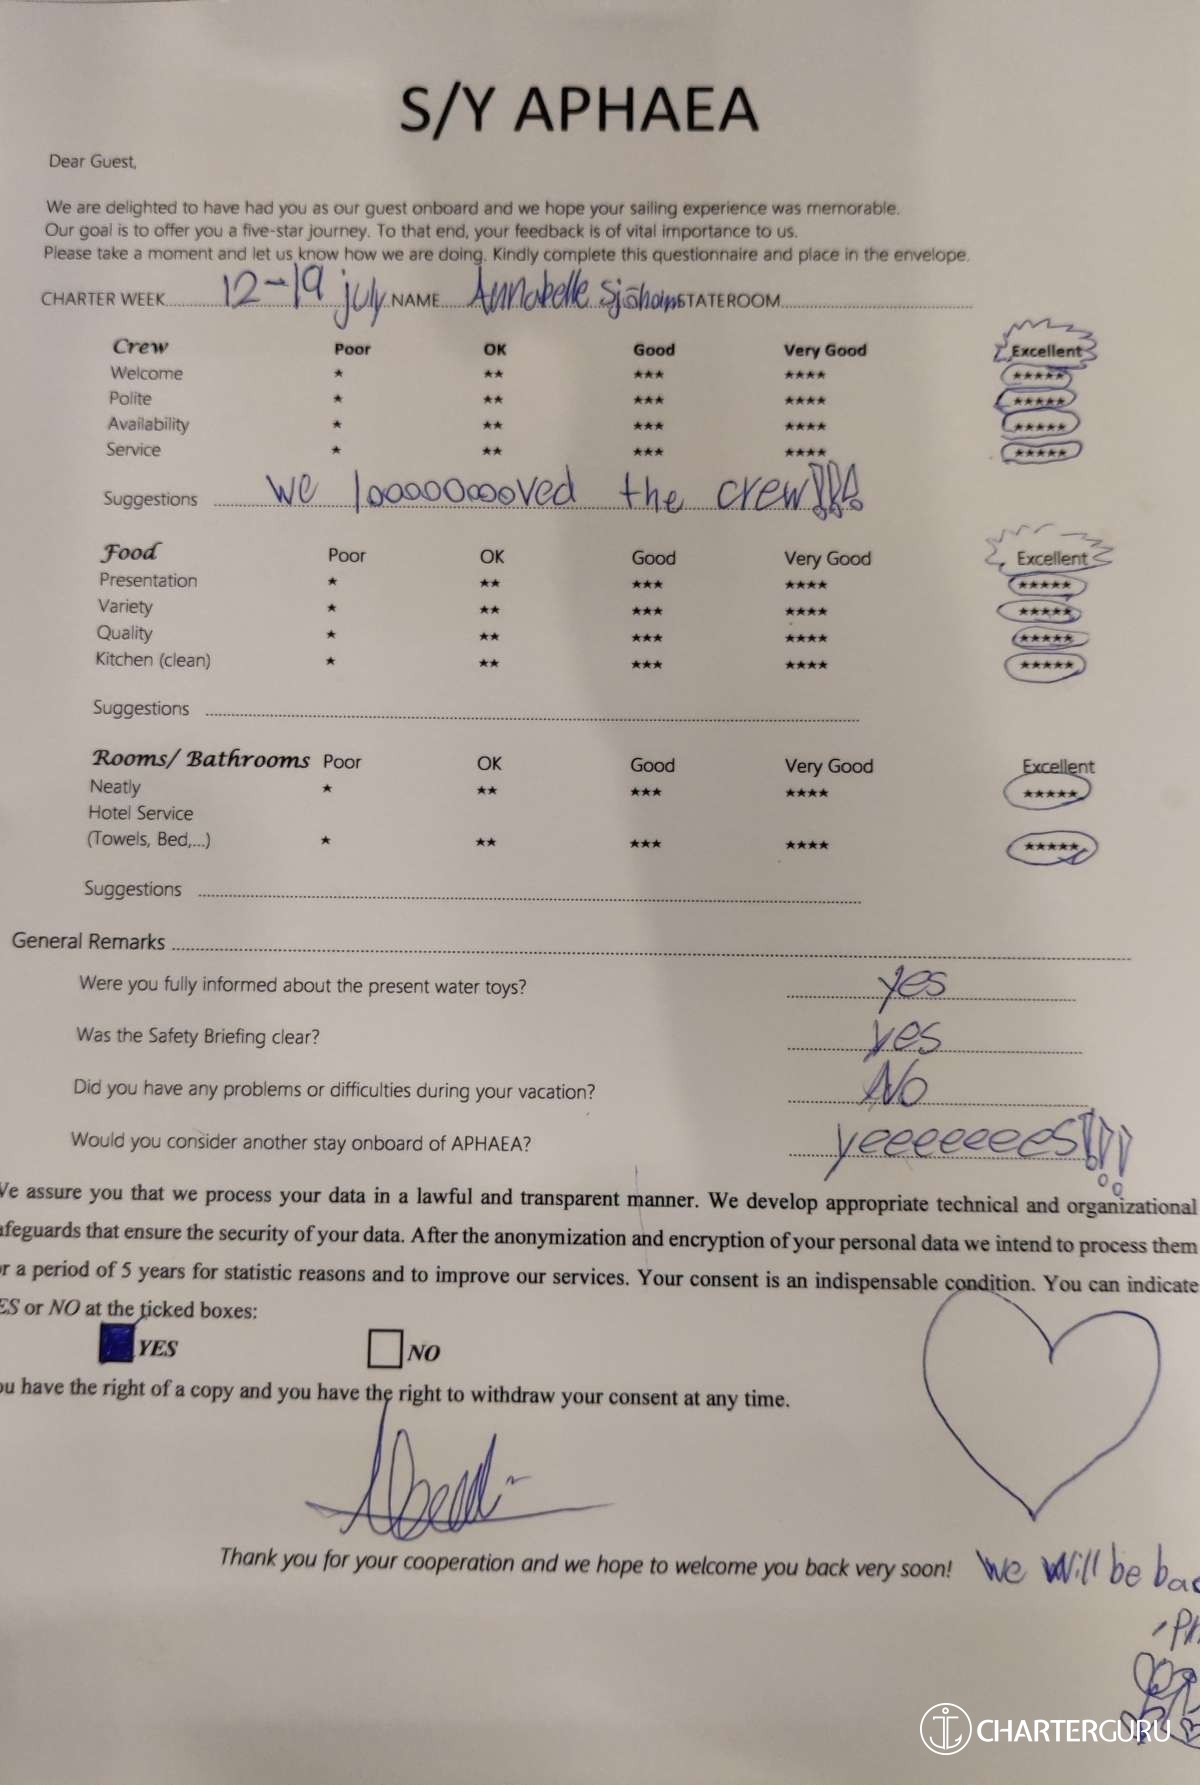 S/Y APHAEA
Dear Guest,
We are delighted to have had you as our guest onboard and we hope your sailing experience was memorable.
Our goal is to offer you a five-star journey. To that end, your feedback is of vital importance to us.
Please take a moment and let us know how we are doing. Kindly complete this questionnaire and place in the envelope.
CHARTER WEEK 12-19 july NAME Annabelle STATEROOM
Crew Poor OK Good Very Good Excellent
Welcome ★ ★★ ★★★ ★★★★ ★★★★★
Polite ★ ★★ ★★★ ★★★★ ★★★★★
Availability ★ ★★ ★★★ ★★★★ ★★★★★
Service ★ ★★ ★★★ ★★★★ ★★★★★
Suggestions We looooooooved the crew!!!
Food Poor OK Good Very Good Excellent
Presentation ★ ★★ ★★★ ★★★★ ★★★★★
Variety ★ ★★ ★★★ ★★★★ ★★★★★
Quality ★ ★★ ★★★ ★★★★ ★★★★★
Kitchen (clean) ★ ★★ ★★★ ★★★★ ★★★★★
Suggestions
Rooms/ Bathrooms Poor OK Good Very Good Excellent
Neatly ★ ★★ ★★★ ★★★★ ★★★★★
Hotel Service
(Towels, Bed,...) ★ ★★ ★★★ ★★★★ ★★★★★
Suggestions
General Remarks
Were you fully informed about the present water toys? yes
Was the Safety Briefing clear? yes
Did you have any problems or difficulties during your vacation? No
Would you consider another stay onboard of APHAEA? yeeeeeees!!!
We assure you that we process your data in a lawful and transparent manner. We develop appropriate technical and organizational
afeguards that ensure the security of your data. After the anonymization and encryption of your personal data we intend to process them
or a period of 5 years for statistic reasons and to improve our services. Your consent is an indispensable condition. You can indicate
ES or NO at the ticked boxes:
YES NO
ou have the right of a copy and you have the right to withdraw your consent at any time.
Thank you for your cooperation and we hope to welcome you back very soon! We will be bac
CHARTERGURU